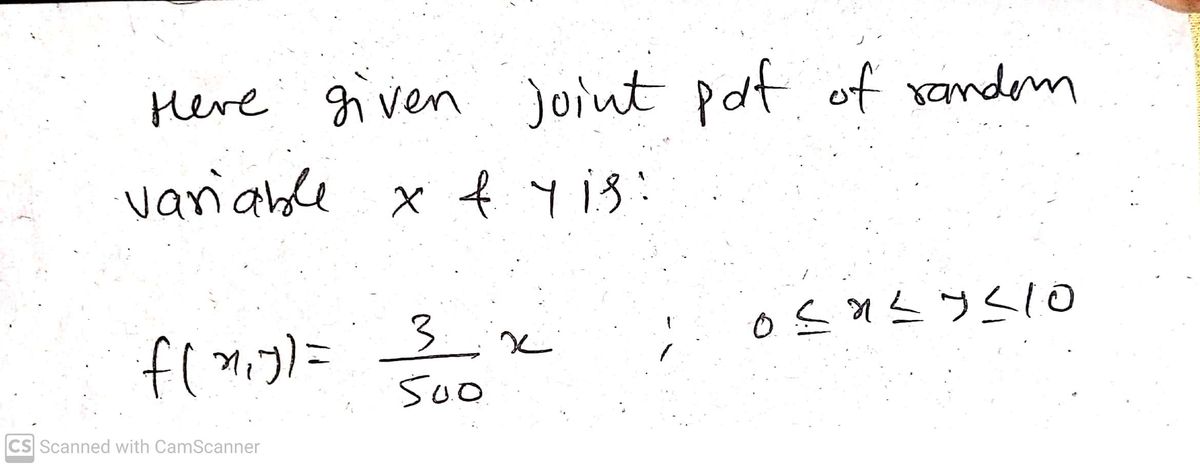 Here given joint pdf of random
variable x & y is:
f(x,y)= 3/500 x ; 0 ≤ x ≤ y ≤ 10
CS Scanned with CamScanner